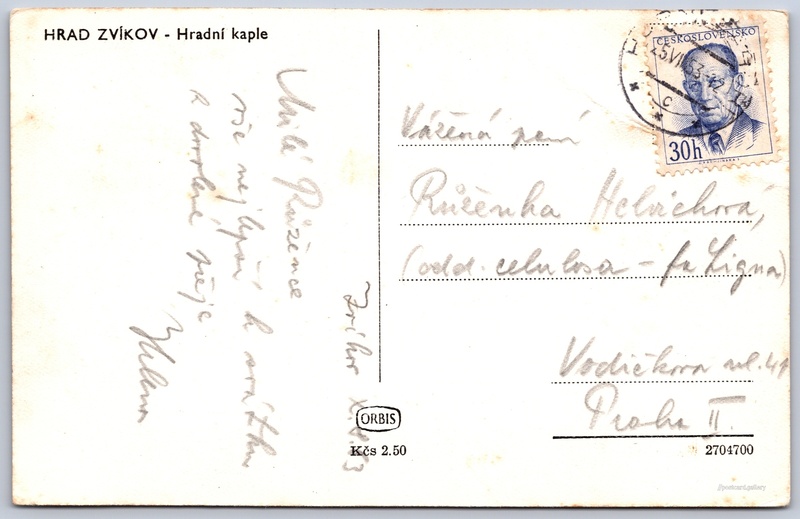 HRAD ZVÍKOV - Hradní kaple
Milá Růžence
vše nejlepší k svátku
k dovolené přeje
Helena
Zvíkov
ČESKOSLOVENSKO
30h
Vážená paní
Růženka Helvichová,
(odd. celulosa - fa Ligna)
Vodičkova ul. 41
Praha II.
ORBIS
Kčs 2.50
2704700